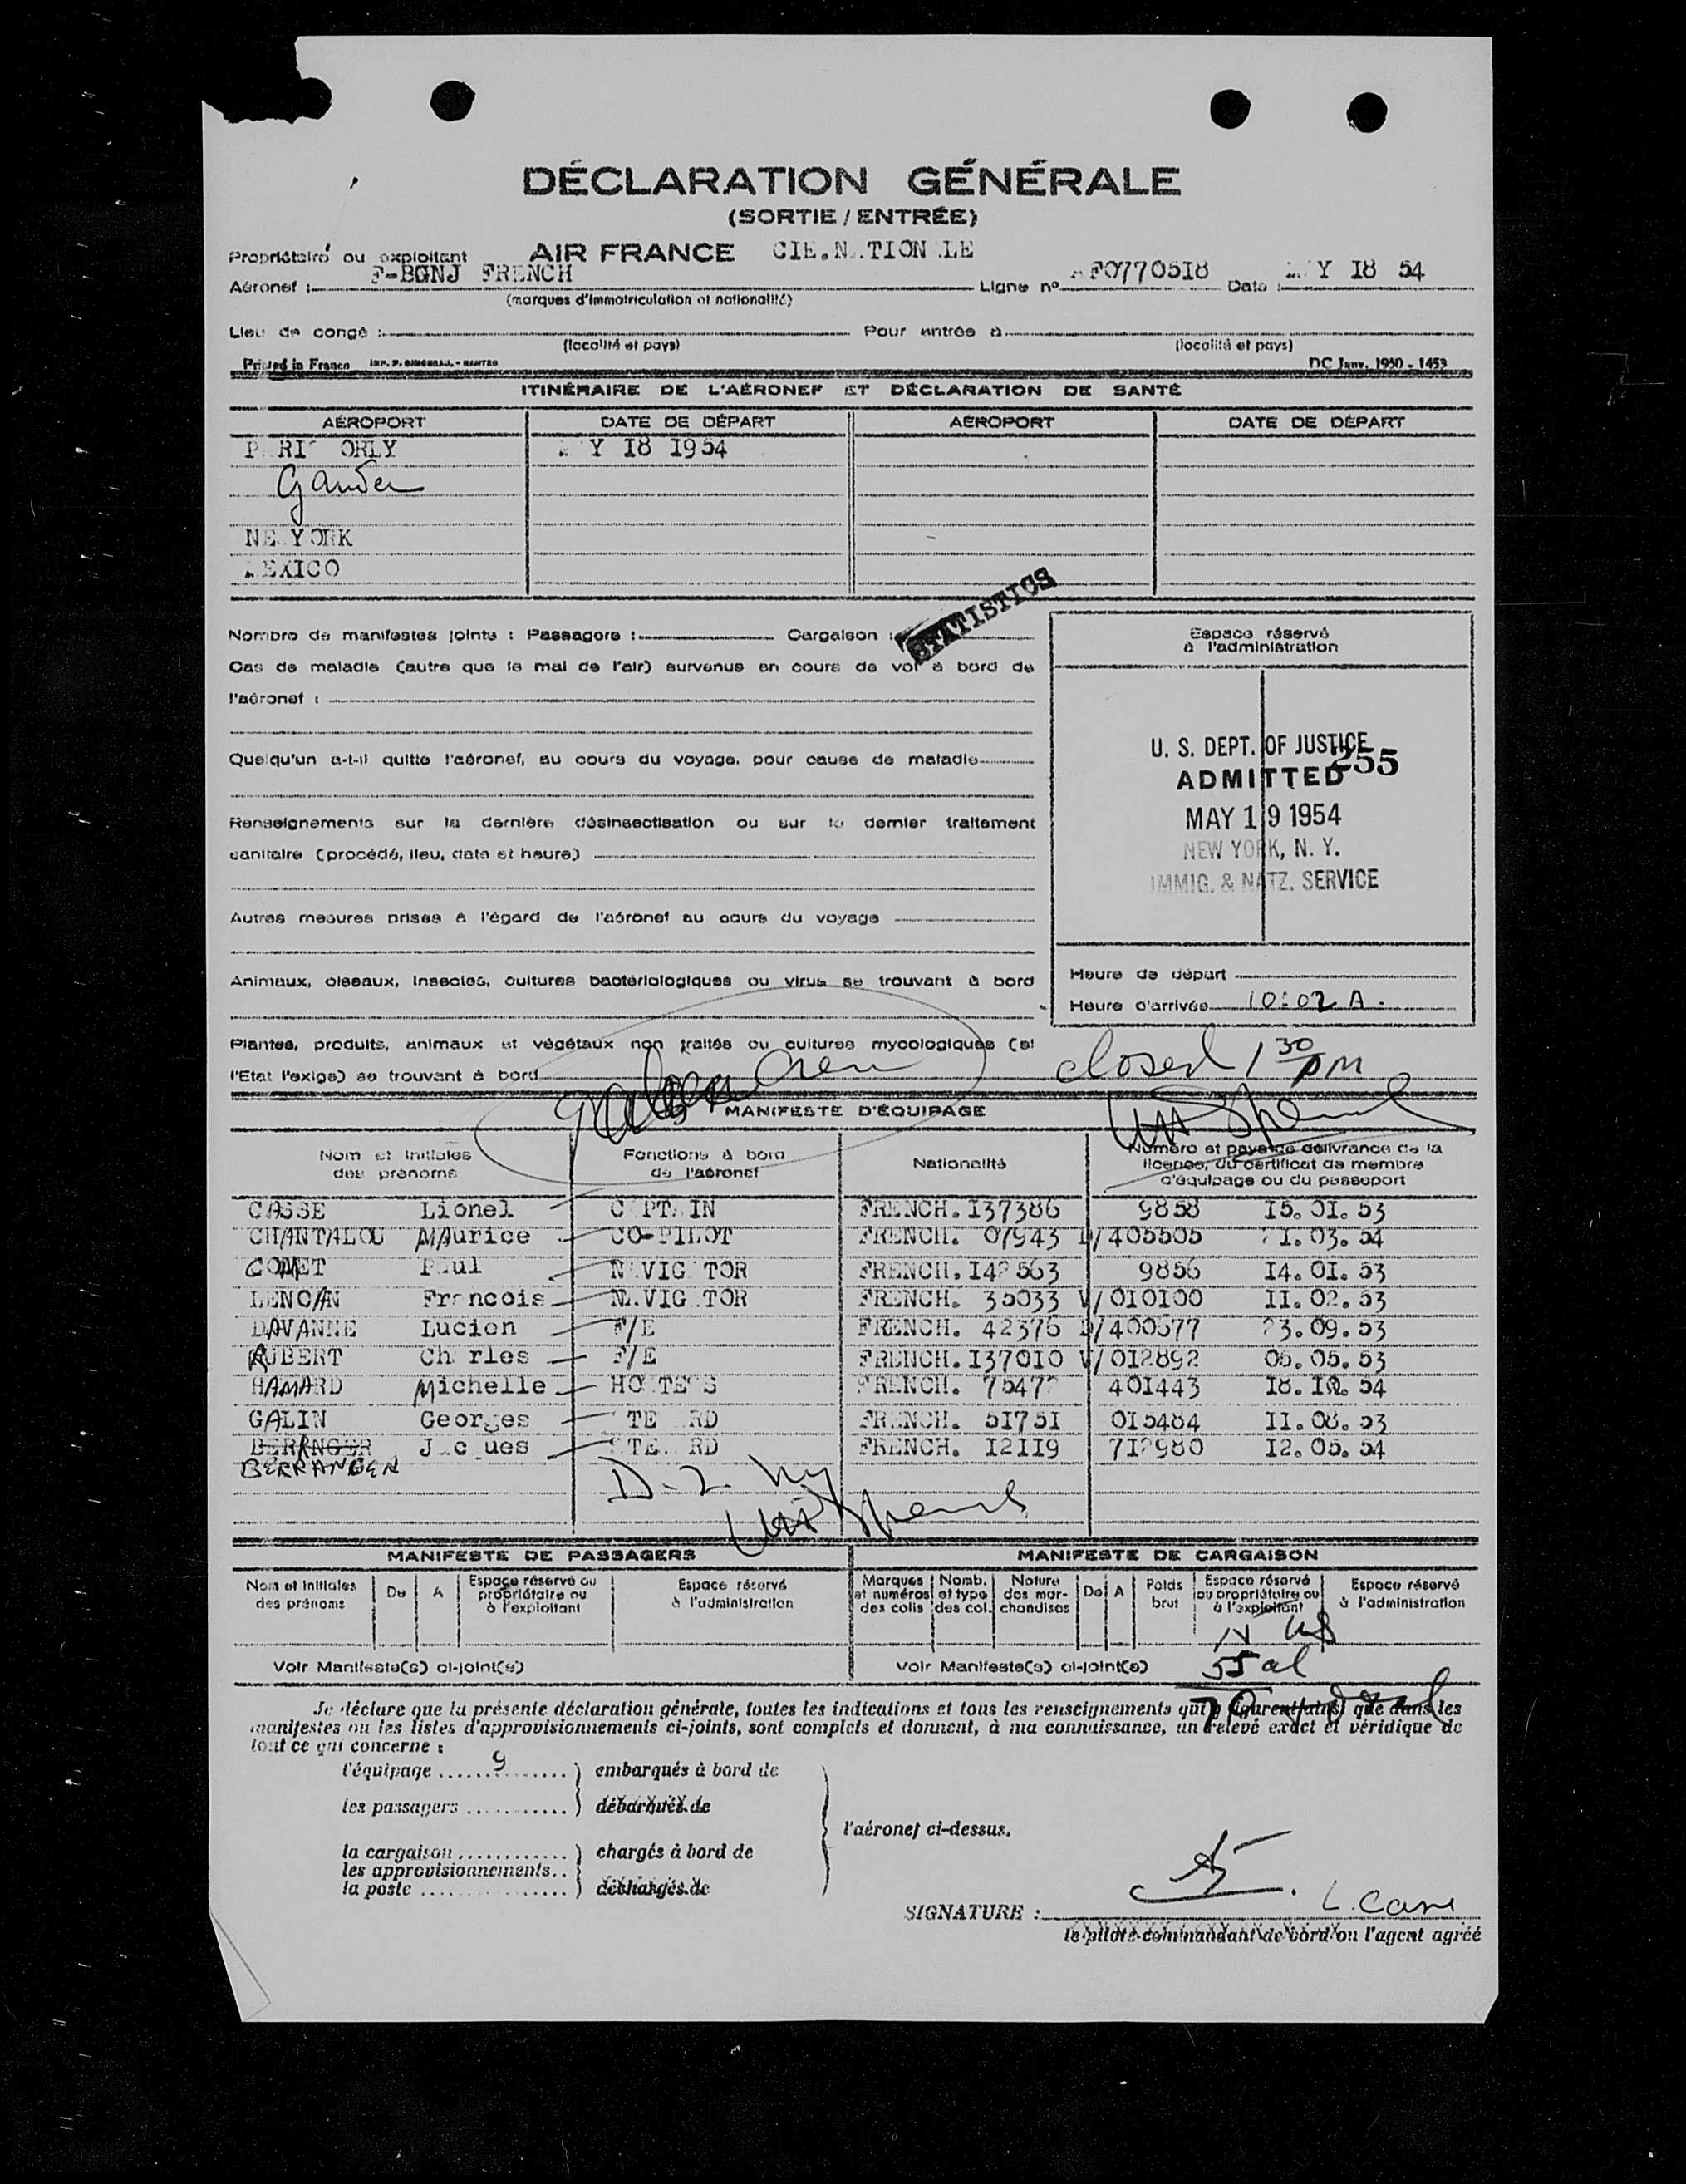 DÉCLARATION GÉNÉRALE
(SORTIE / ENTRÉE)
Propriétaire ou exploitant AIR FRANCE CIE.N TION LE
Aéronef : F-BGNJ FRENCH Ligne nº AF0770518 Date : M Y 18 54
(marques d'immatriculation et nationalité)
Lieu de congé : Pour entrée à
(localité et pays) (localité et pays)
Printed in France DC Janv. 1950 - 1453
ITINÉRAIRE DE L'AÉRONEF ET DÉCLARATION DE SANTÉ
AÉROPORT DATE DE DÉPART AÉROPORT DATE DE DÉPART
P RI ORLY M Y 18 1954
Gander
NE YORK
MEXICO
STATISTICS
Nombre de manifestes joints : Passagers : Cargaison :
Cas de maladie (autre que le mal de l'air) survenus en cours de vol à bord de
l'aéronef :
Quelqu'un a-t-il quitté l'aéronef, au cours du voyage, pour cause de maladie
Renseignements sur la dernière désinsectisation ou sur le dernier traitement
sanitaire (procédé, lieu, date et heure)
Autres mesures prises à l'égard de l'aéronef au cours du voyage
Animaux, oiseaux, insectes, cultures bactériologiques ou virus se trouvant à bord
Plantes, produits, animaux et végétaux non traités ou cultures mycologiques (si
l'Etat l'exige) se trouvant à bord
Espace réservé
à l'administration
U. S. DEPT. OF JUSTICE
255
ADMITTED
MAY 19 1954
NEW YORK, N. Y.
IMMIG. & NATZ. SERVICE
Heure de départ
Heure d'arrivée 10:02 A.
Crew closed 1 30 PM
MANIFESTE D'ÉQUIPAGE
Nom et initiales des prénoms Fonctions à bord de l'aéronef Nationalité Numéro et pays de délivrance de la licence, du certificat de membre d'équipage ou du passeport
CASSE Lionel C PT IN FRENCH. 137386 9858 15. 01. 53
CHANTALOU MAurice CO-PILOT FRENCH. 07943 D/405505 21. 03. 54
COMET P ul N VIG TOR FRENCH. 142563 9856 14. 01. 53
LENOAN Fr ncois N VIG TOR FRENCH. 35033 V/010100 11. 02. 53
DAVANNE Lucien F/E FRENCH. 42376 D/400577 23. 09. 53
AUBERT Ch rles F/E FRENCH. 137010 V/012892 05. 05. 53
HAMARD Michelle HO TE S FRENCH. 75472 401443 18. 12. 54
GALIN Georges TE RD FRENCH. 51751 015484 11. 08. 53
BERRNGER J c ues STE RD FRENCH. 12119 712980 12. 05. 54
BERRANGER
D-2. Ny
MANIFESTE DE PASSAGERS MANIFESTE DE CARGAISON
Nom et initiales des prénoms De A Espace réservé au propriétaire ou à l'exploitant Espace réservé à l'administration Marques et numéros des colis Nomb. et type des col. Nature des mar- chandises De A Poids brut Espace réservé au propriétaire ou à l'exploitant Espace réservé à l'administration
Voir Manifeste(s) ci-joint(s) Voir Manifeste(s) ci-joint(s)
15 US
55 al
70
Je déclare que la présente déclaration générale, toutes les indications et tous les renseignements qui y figurent ainsi que dans les
manifestes ou les listes d'approvisionnements ci-joints, sont complets et donnent, à ma connaissance, un relevé exact et véridique de
tout ce qui concerne :
l'équipage ...... 9 ...... embarqués à bord de
les passagers ............ débarqués de
l'aéronef ci-dessus.
la cargaison ............ chargés à bord de
les approvisionnements..
la poste ................ déchargés de
SIGNATURE : L. Casse
le pilote commandant de bord ou l'agent agréé